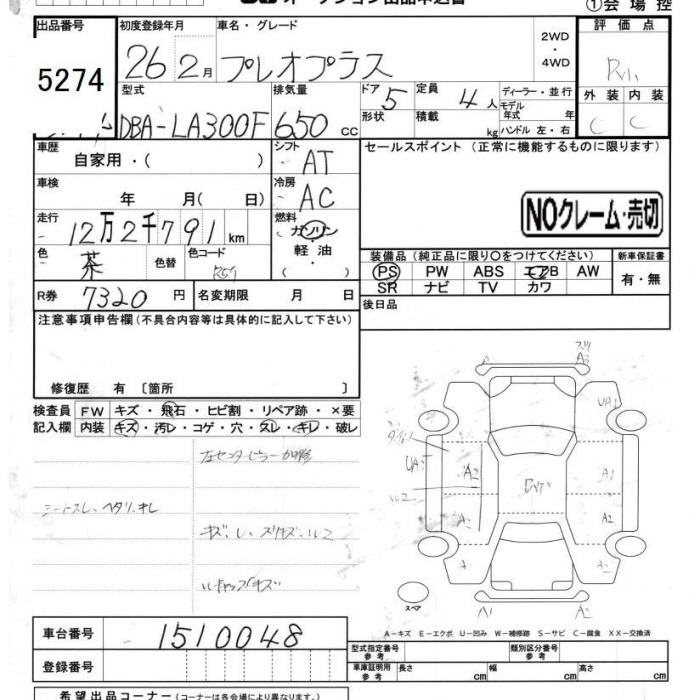 オークション出品申込書
①会場控
出品番号
5274
初度登録年月
26 2月
車名・グレード
プレオプラス
2WD
・
4WD
評価点
型式
DBA-LA300F
排気量
650 cc
ドア
5
形状
定員
4人
積載
kg
ディーラー・並行
モデル
年式 年
ハンドル 左・右
外装 内装
C C
車歴
自家用・( )
シフト
AT
セールスポイント (正常に機能するものに限ります)
車検
年 月( 日)
冷房
AC
NOクレーム・売切
走行
12万2千791 km
燃料
ガソリン
軽油
( )
色
茶
色替
色コード
R59
装備品 (純正品に限り○をつけてください)
PS PW ABS エアB AW
SR ナビ TV カワ
新車保証書
有・無
R券 7320 円
名変期限 月 日
後日品
注意事項申告欄(不具合内容等は具体的に記入して下さい)
修復歴 有 〔箇所 〕
検査員
記入欄
FW キズ・飛石・ヒビ割・リペア跡・×要
内装 キズ・汚レ・コゲ・穴・スレ・キレ・破レ
左センターピラー
シートスレ、ヘタリ、キレ
スリ
A2
UA1
UA1
A2
A1
A2
A2
A
A2
A1
A2
スペア
A-キズ E-エクボ U-凹み W-補修跡 S-サビ C-腐食 XX-交換済
車台番号
1510048
登録番号
型式指定番号
参考
類別区分番号
参考
車庫証明用
参考
長さ cm
幅 cm
高さ cm
希望出品コーナー(コーナーは各会場により異なります)